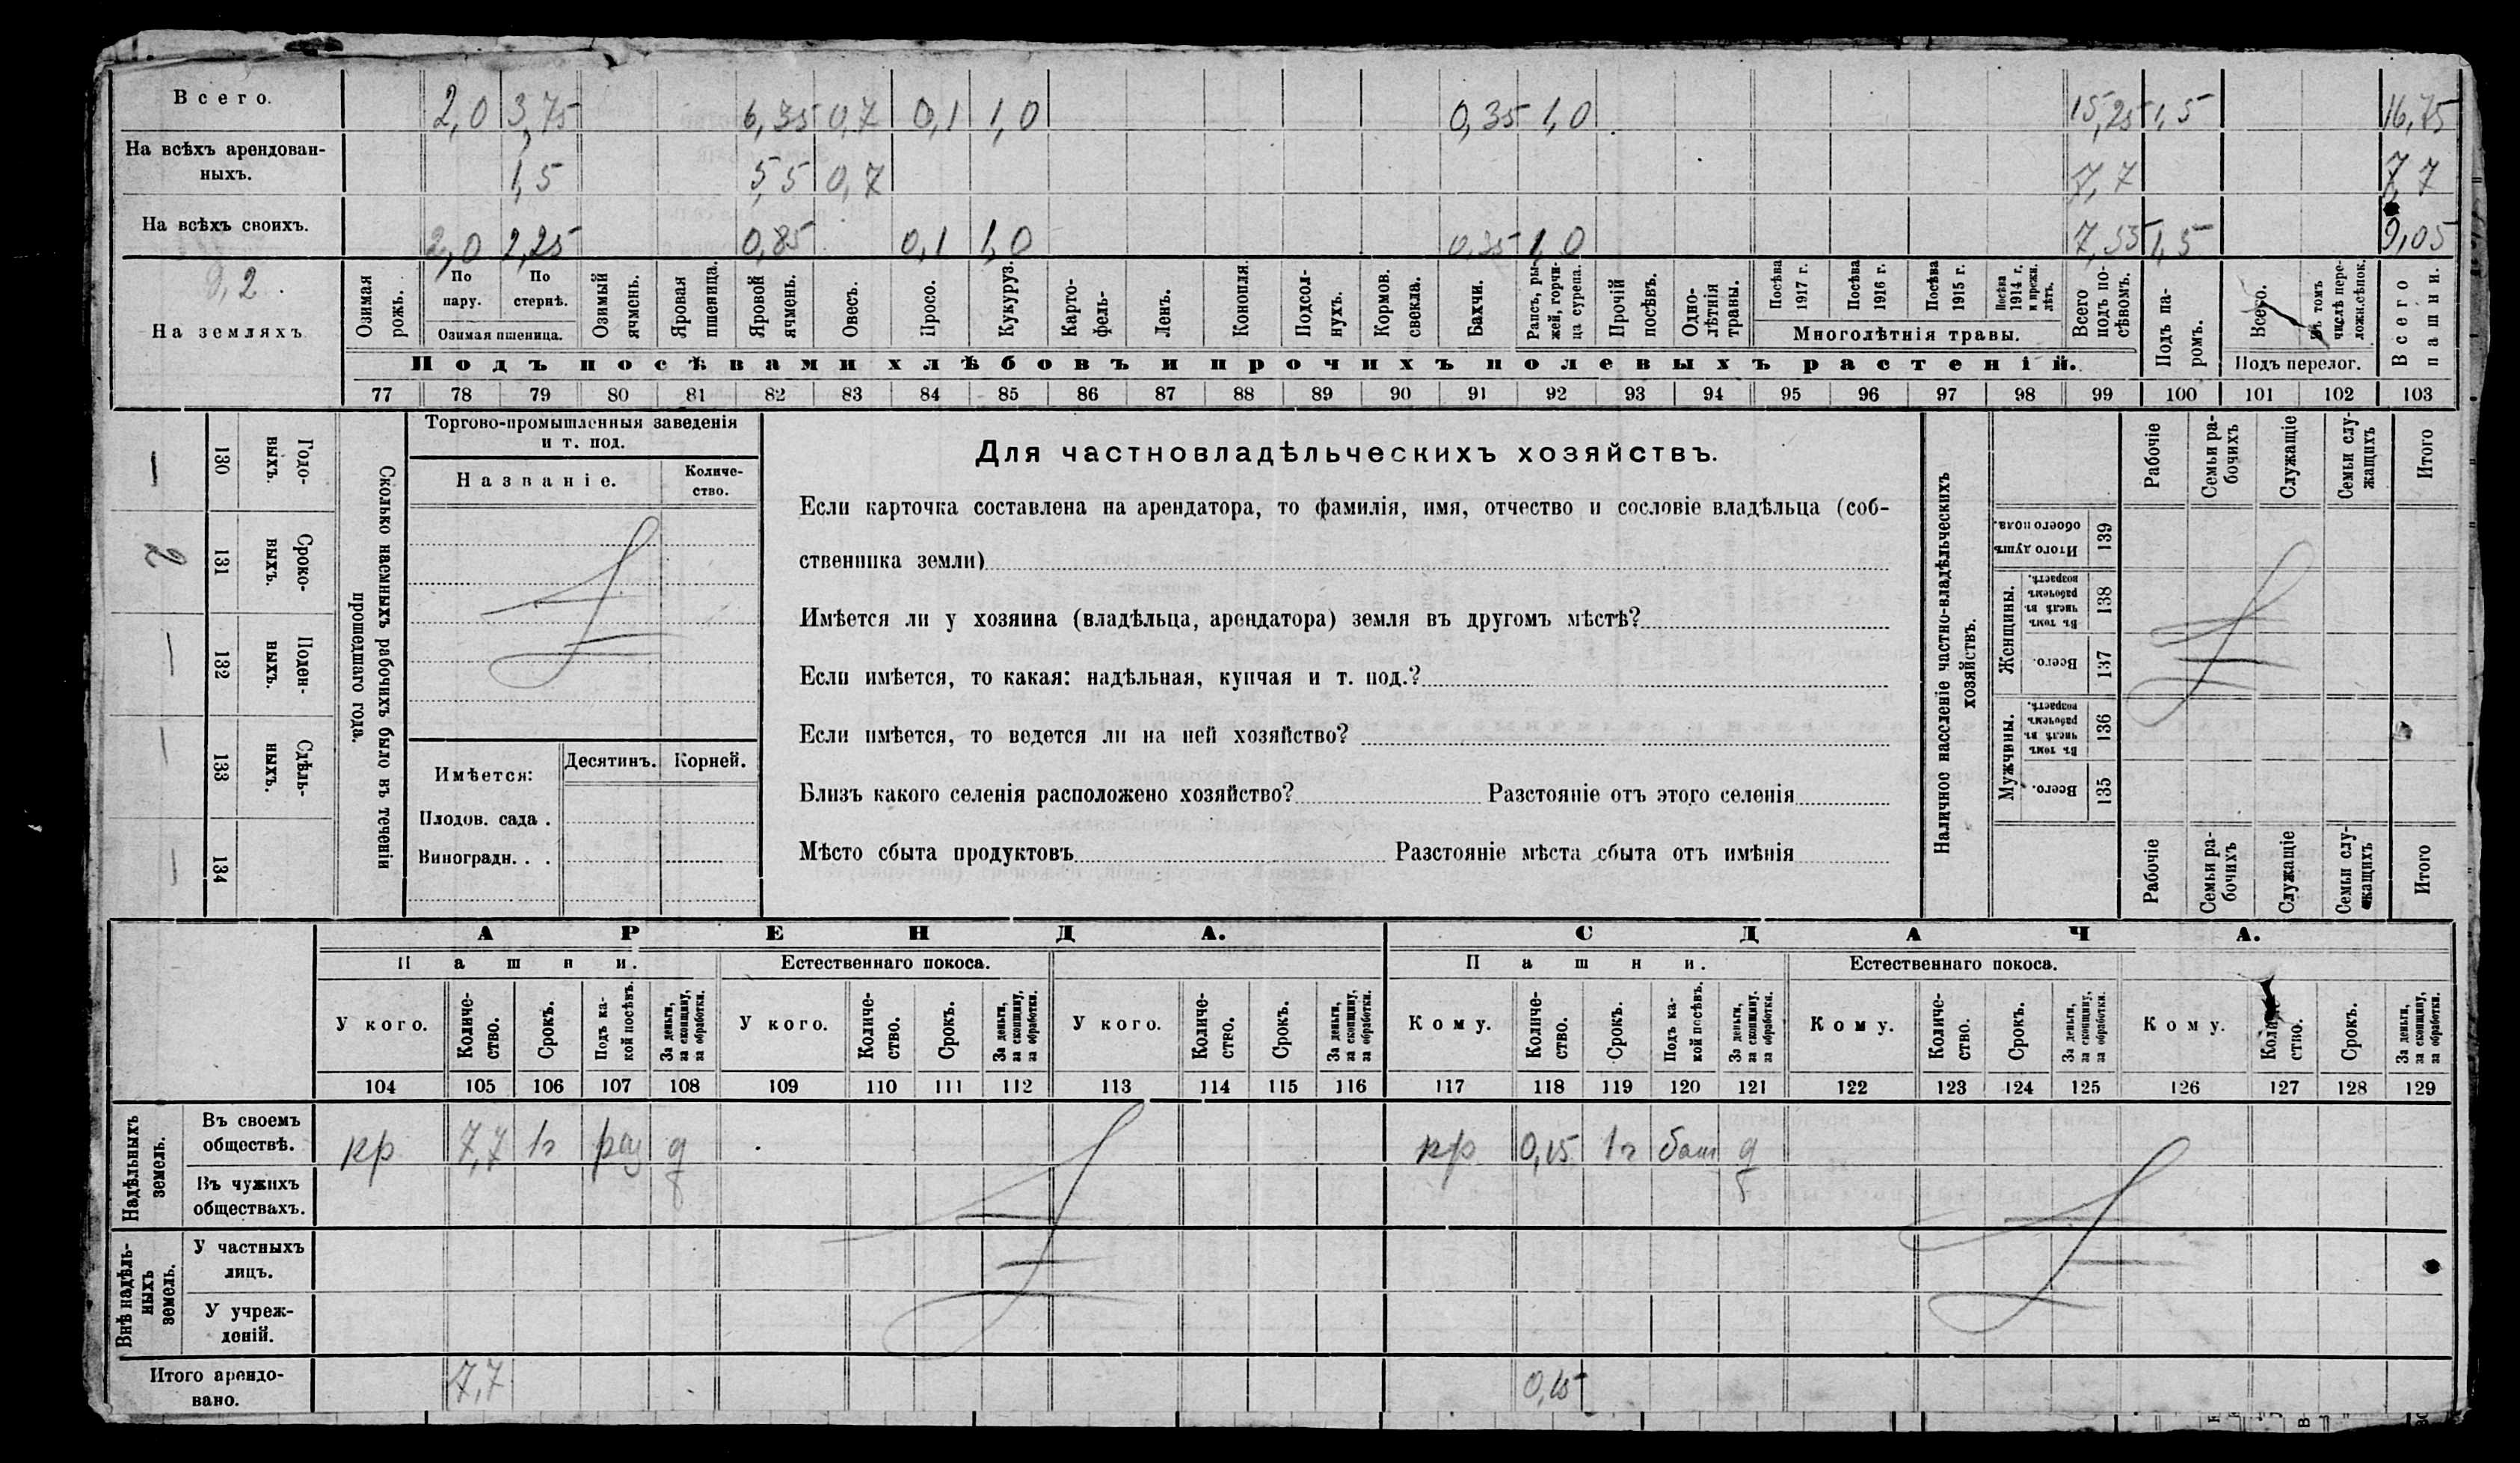 Всего. 2,0 3,75 6,35 0,7 0,1 1,0 0,35 1,0 15,25 1,5 16,75
На всѣхъ арендован-
ныхъ. 1,5 5,5 0,7 7,7 7,7
На всѣхъ своихъ. 2,0 2,25 0,85 0,1 1,0 0,35 1,0 7,55 1,5 9,05
9,2.
На земляхъ
Озимая рожь.
По пару.
По стернѣ.
Озимая пшеница.
Озимый ячмень.
Яровая пшеница.
Яровой ячмень.
Овесъ.
Просо.
Кукуруз.
Карто-
фель-
Ленъ.
Конопля.
Подсол-
нухъ.
Кормов.
свекла.
Бахчи.
Рапсъ, ры-
жей, горчи-
ца сурепа.
Прочій
посѣвъ.
Одно-
лѣтнія
травы.
Посѣва
1917 г.
Посѣва
1916 г.
Посѣва
1915 г.
Посѣва
1914 г.
и прежн.
лѣтъ.
Многолѣтнія травы.
Всего
подъ по-
сѣвомъ.
Подъ па-
ромъ.
Всего.
Въ томъ
числѣ пере-
ложн.сѣнок.
Подъ перелог.
Всего
пашни.
Подъ посѣвами хлѣбовъ и прочихъ полевыхъ растеній.
77 78 79 80 81 82 83 84 85 86 87 88 89 90 91 92 93 94 95 96 97 98 99 100 101 102 103
Сколько наемныхъ рабочихъ было въ теченіи
прошедшаго года.
Годо-
выхъ.
130 —
Сроко-
выхъ.
131 2
Поден-
ныхъ.
132 —
Сдѣль-
ныхъ.
133 —
134 —
Торгово-промышленныя заведенія
и т. под.
Названіе.
Количе-
ство.
Имѣется: Десятинъ. Корней.
Плодов. сада .
Виноградн. . .
Для частновладѣльческихъ хозяйствъ.
Если карточка составлена на арендатора, то фамилія, имя, отчество и сословіе владѣльца (соб-
ственника земли)
Имѣется ли у хозяина (владѣльца, арендатора) земля въ другомъ мѣстѣ?
Если имѣется, то какая: надѣльная, купчая и т. под.?
Если имѣется, то ведется ли на ней хозяйство?
Близъ какого селенія расположено хозяйство? Разстояніе отъ этого селенія
Мѣсто сбыта продуктовъ Разстояніе мѣста сбыта отъ имѣнія
Наличное населеніе частно-владѣльческихъ
хозяйствъ.
Рабочіе
Семьи ра-
бочихъ
Служащіе
Семьи слу-
жащихъ
Итого
Итого душъ
обоего пола.
139
Женщины.
Въ томъ
числѣ въ
рабочемъ
возрастѣ.
138
Всего.
137
Мужчины.
Въ томъ
числѣ въ
рабочемъ
возрастѣ.
136
Всего.
135
Рабочіе
Семьи ра-
бочихъ
Служащіе
Семьи слу-
жащихъ
Итого
АРЕНДА. СДАЧА.
Пашни. Естественнаго покоса. Пашни. Естественнаго покоса.
У кого.
Количе-
ство.
Срокъ.
Подъ ка-
кой посѣвъ.
За деньги,
за скопщину,
за обработки.
У кого.
Количе-
ство.
Срокъ.
За деньги,
за скопщину,
за обработки.
У кого.
Количе-
ство.
Срокъ.
За деньги,
за скопщину,
за обработки.
Кому.
Количе-
ство.
Срокъ.
Подъ ка-
кой посѣвъ.
За деньги,
за скопщину.
за обработки.
Кому.
Количе-
ство.
Срокъ.
За деньги,
за скопщину,
за обработки.
Кому.
Количе-
ство.
Срокъ.
За деньги,
за скопщину,
за обработки.
104 105 106 107 108 109 110 111 112 113 114 115 116 117 118 119 120 121 122 123 124 125 126 127 128 129
Надѣльныхъ
земель.
Въ своемъ
обществѣ. кр 7,7 1г раз д кр 0,15 1г баш д
Въ чужихъ
обществахъ.
Внѣ надѣль-
ныхъ
земель.
У частныхъ
лицъ.
У учреж-
деній.
Итого арендо-
вано. 7,7 0,15